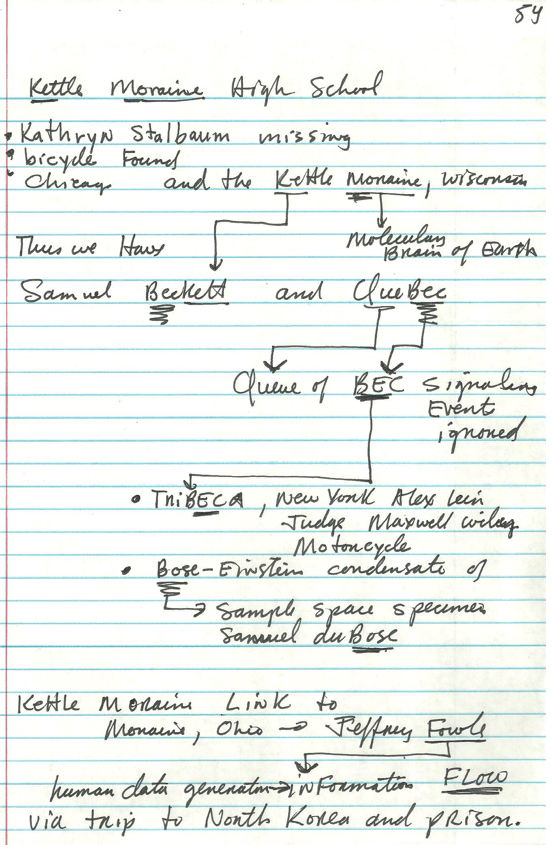 54
Kettle Moraine High School
• Kathryn Stalbaum missing
• bicycle Found
• Chicago and the Kettle Moraine, Wisconsin
Molecular
Brain of Earth
Thus we Have
Samuel Beckett and QueBec
Queue of BEC signaling
Event
ignored
• TriBECA, New York Alex
Judge Maxwell Wiley
Motorcycle
• Bose-Einstein condensate of
Sample space specimen
Samuel duBose
Kettle Moraine Link to
Moraine, Ohio → Jeffrey Fowle
human data generator → inFormation FLOW
via trip to North Korea and prison.